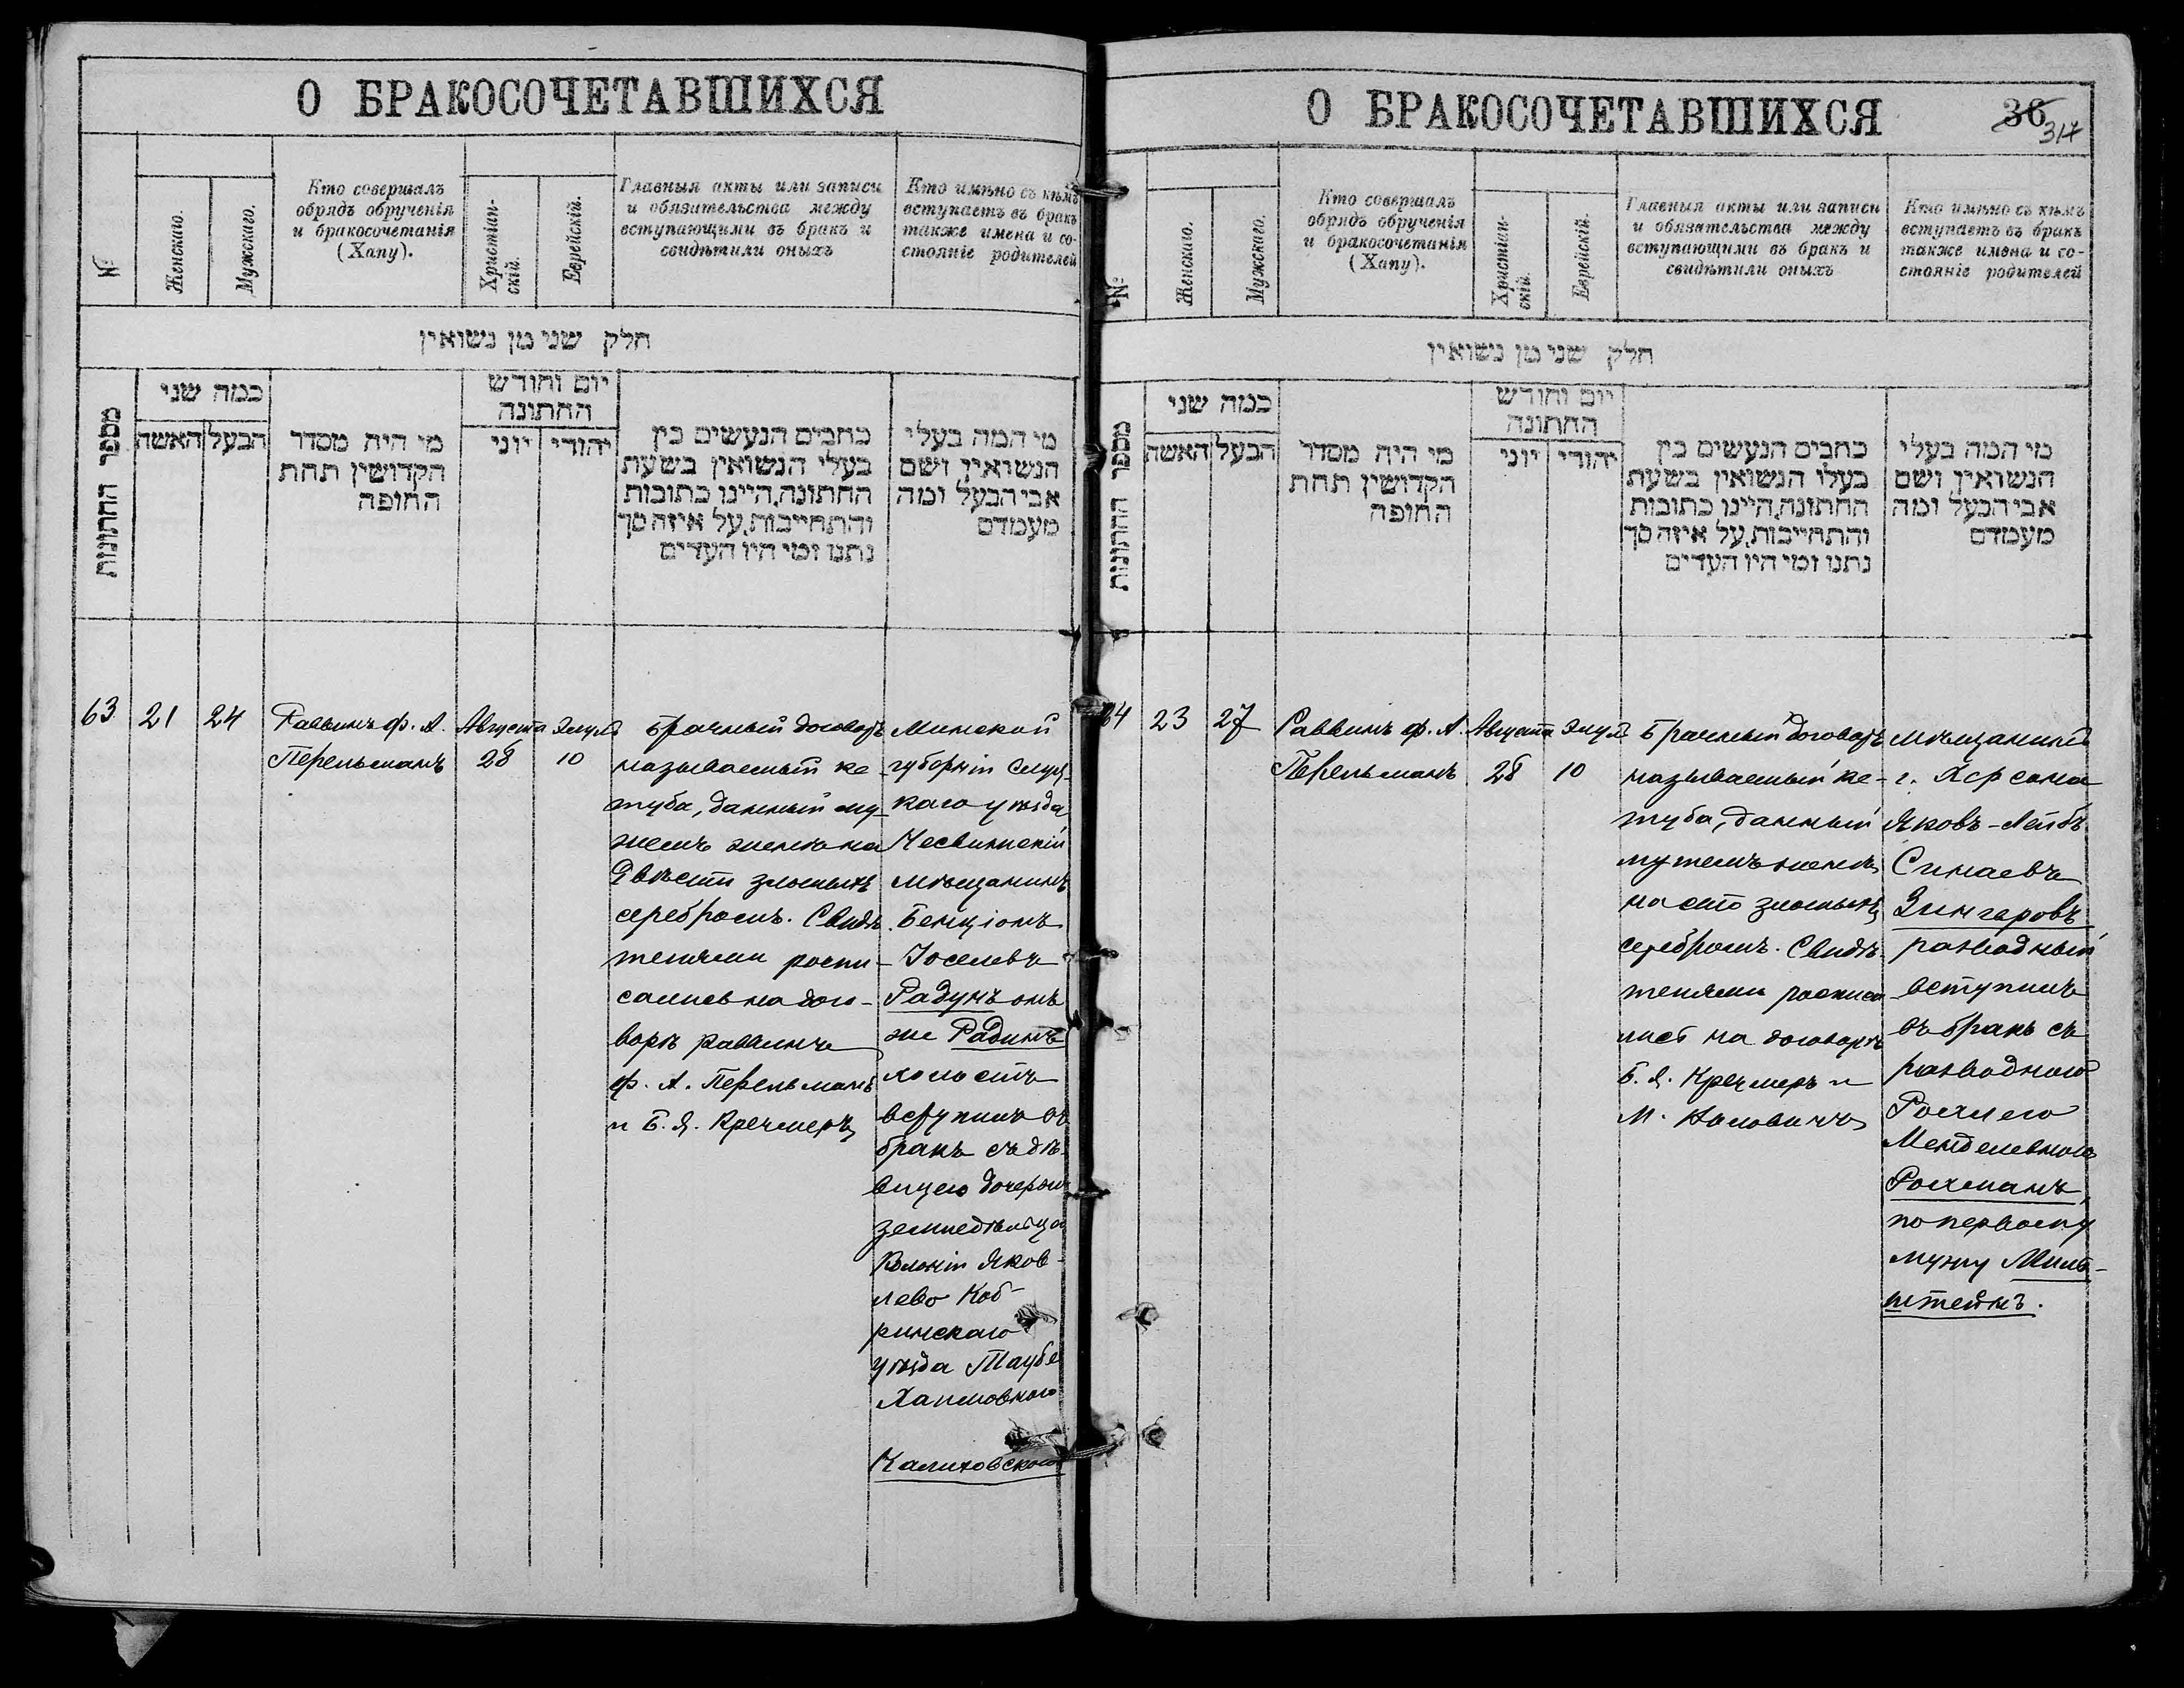 О БРАКОСОЧЕТАВШИХСЯ
№
Женскаго.
Мужскаго.
Кто совершалъ
обрядъ обрученія
и бракосочетанія
(Хапу).
Христіан-
скій.
Еврейскій.
Главныя акты или записи
и обязательства между
вступающими въ бракъ и
свидѣтили оныхъ
Кто имѣно съ кѣмъ
вступаетъ въ бракъ
также имена и со-
стояніе родителей
חלק שני מן נשואין
מספר החתונות
כמה שני
האשה
הבעל
מי היה מסדר
הקדושין תחת
החופה
יום וחודש
החתונה
יוני
יהודי
כתבים הנעשים בין
בעלי הנשואין בשעת
החתונה,היינו כתובות
והתחייבות,על איזה סך
נתנו ומי היו העדים
מי המה בעלי
הנשואין ושם
אבי הבעל ומה
מעמדם
63
21
24
Раввинъ ф. А.
Перельманъ
Августа
28
Элулъ
10
Брачный договоръ
называемый ке-
туба, данный му-
жемъ женѣ на
Двѣсти злотыхъ
серебромъ. Свидѣ-
телями роспи-
сались на дого-
ворѣ раввинъ
ф. А. Перельманъ
и Б. Я. Кречмеръ
Минской
губерніи Слуц-
каго уѣзда
Несвижскій
мѣщанинъ
Бенціонъ
Іоселевъ
Радунъ онъ
же Радинъ
холостъ
вступилъ въ
бракъ съ дѣ-
вицею дочерью
земледѣльца
Колоніи Яков-
лево Коб-
ринскаго
уѣзда Таубе
Хаимовною
Калиховскою
О БРАКОСОЧЕТАВШИХСЯ
36
317
№
Женскаго.
Мужскаго.
Кто совершалъ
обрядъ обрученія
и бракосочетанія
(Хапу).
Христіан-
скій.
Еврейскій.
Главныя акты или записи
и обязательства между
вступающими въ бракъ и
свидѣтили оныхъ
Кто имѣно съ кѣмъ
вступаетъ въ бракъ
также имена и со-
стояніе родителей
חלק שני מן נשואין
מספר החתונות
כמה שני
האשה
הבעל
מי היה מסדר
הקדושין תחת
החופה
יום וחודש
החתונה
יוני
יהודי
כתבים הנעשים בין
בעלי הנשואין בשעת
החתונה,היינו כתובות
והתחייבות,על איזה סך
נתנו ומי היו העדים
מי המה בעלי
הנשואין ושם
אבי הבעל ומה
מעמדם
64
23
27
Раввинъ ф. А.
Перельманъ
Августа
28
Элулъ
10
Брачный договоръ
называемый ке-
туба, данный
мужемъ женѣ
на сто злотыхъ
серебромъ. Свидѣ-
телями росписа-
лись на договорѣ
Б. Я. Кречмеръ и
М.
мѣщанинъ
г. Херсона
Яковъ-Лейбъ
Синаевъ
Зингеровъ
разводный
вступилъ
въ бракъ съ
разводною
Рохлею
Менделевною
Рохманъ,
по первому
мужу Миль-
штейнъ.